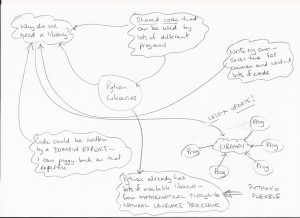 Why do we
need a library?
Shared code that
can be used by
lots of different
programs
Write my own —
save time for
common and useful
lots of code
Python
Libraries
Code could be written
by a DOMAIN EXPERT —
I can piggy-back on that
expertise
Python already has
lots of available libraries —
from MATHEMATICAL through to
NATURAL LANGUAGE PROCESSING
UPDATE!
LIBRARY
Prog
Prog
Prog
Prog
Prog
PYTHON IS
FLEXIBLE